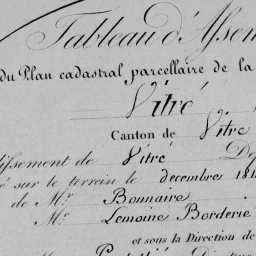 Tableau d'Assem
du Plan cadastral parcellaire de la
Vitré
Canton de Vitré
dissement de Vitré Dép
sur le terrain le decembre 181
de Mr Bonnaire
Mr Lemoine Borderie
et sous la Direction de